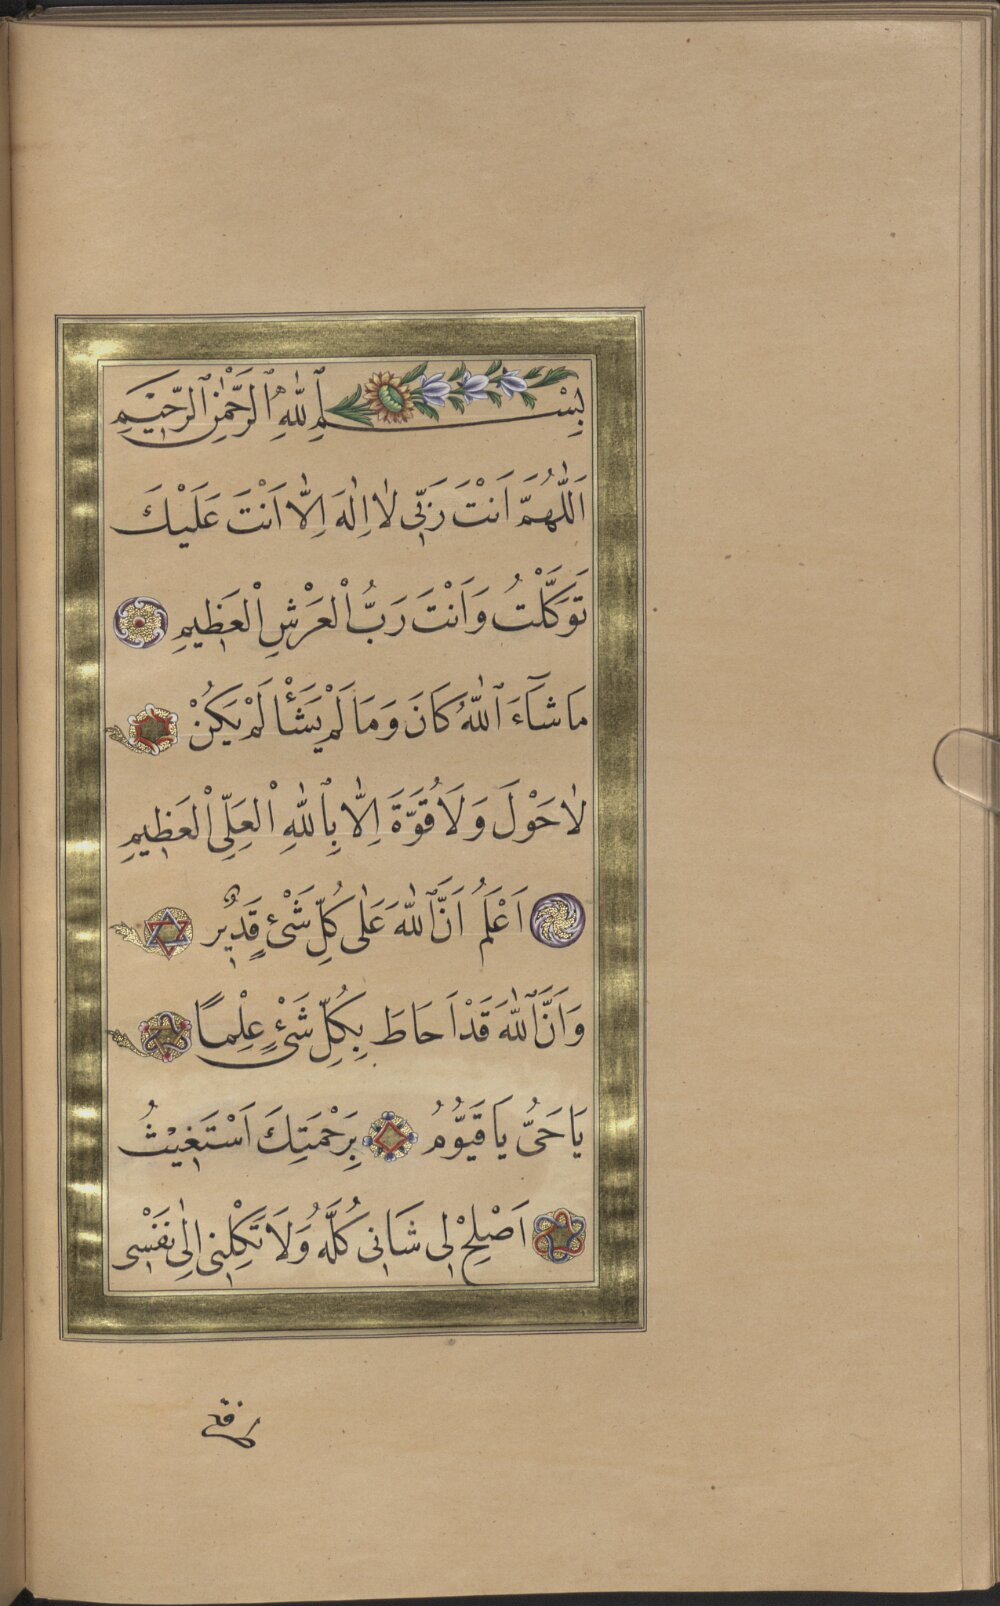 بِسْمِ ٱللّٰهِ ٱلرَّحْمٰنِ ٱلرَّحِيْمِ
اَللّٰهُمَّ اَنْتَ رَبِّي لٰا اِلٰهَ اِلّٰا اَنْتَ عَلَيْكَ
تَوَكَّلْتُ وَاَنْتَ رَبُّ الْعَرْشِ الْعَظِيمِ
مَا شَآءَ ٱللّٰهُ كَانَ وَمَا لَمْ يَشَأْ لَمْ يَكُنْ
لٰا حَوْلَ وَلَا قُوَّةَ اِلّٰا بِٱللّٰهِ الْعَلِيِّ الْعَظِيمِ
اَعْلَمُ اَنَّ ٱللّٰهَ عَلٰى كُلِّ شَىْءٍ قَدِيرٌ
وَاَنَّ ٱللّٰهَ قَدْ اَحَاطَ بِكُلِّ شَىْءٍ عِلْمًا
يَا حَىُّ يَا قَيُّوْمُ بِرَحْمَتِكَ اَسْتَغِيْثُ
اَصْلِحْ لِى شَانِى كُلَّهُ وَلَا تَكِلْنِى اِلٰى نَفْسِى